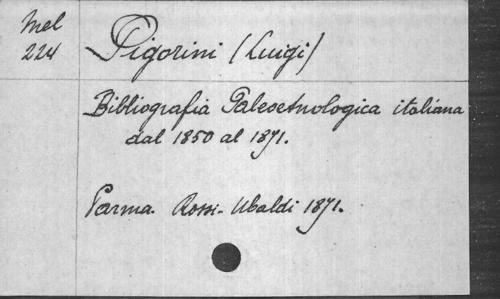 Mel
224
Pigorini (Luigi)
Bibliografia Paleoetnologica italiana
dal 1850 al 1871.
Parma. Rossi-Ubaldi 1871.